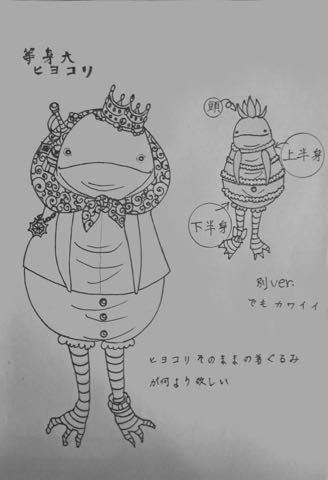 等身大
ヒヨコリ
頭
上半身
下半身
別ver.
でもカワイイ
ヒヨコリそのままの着ぐるみ
が何より欲しい